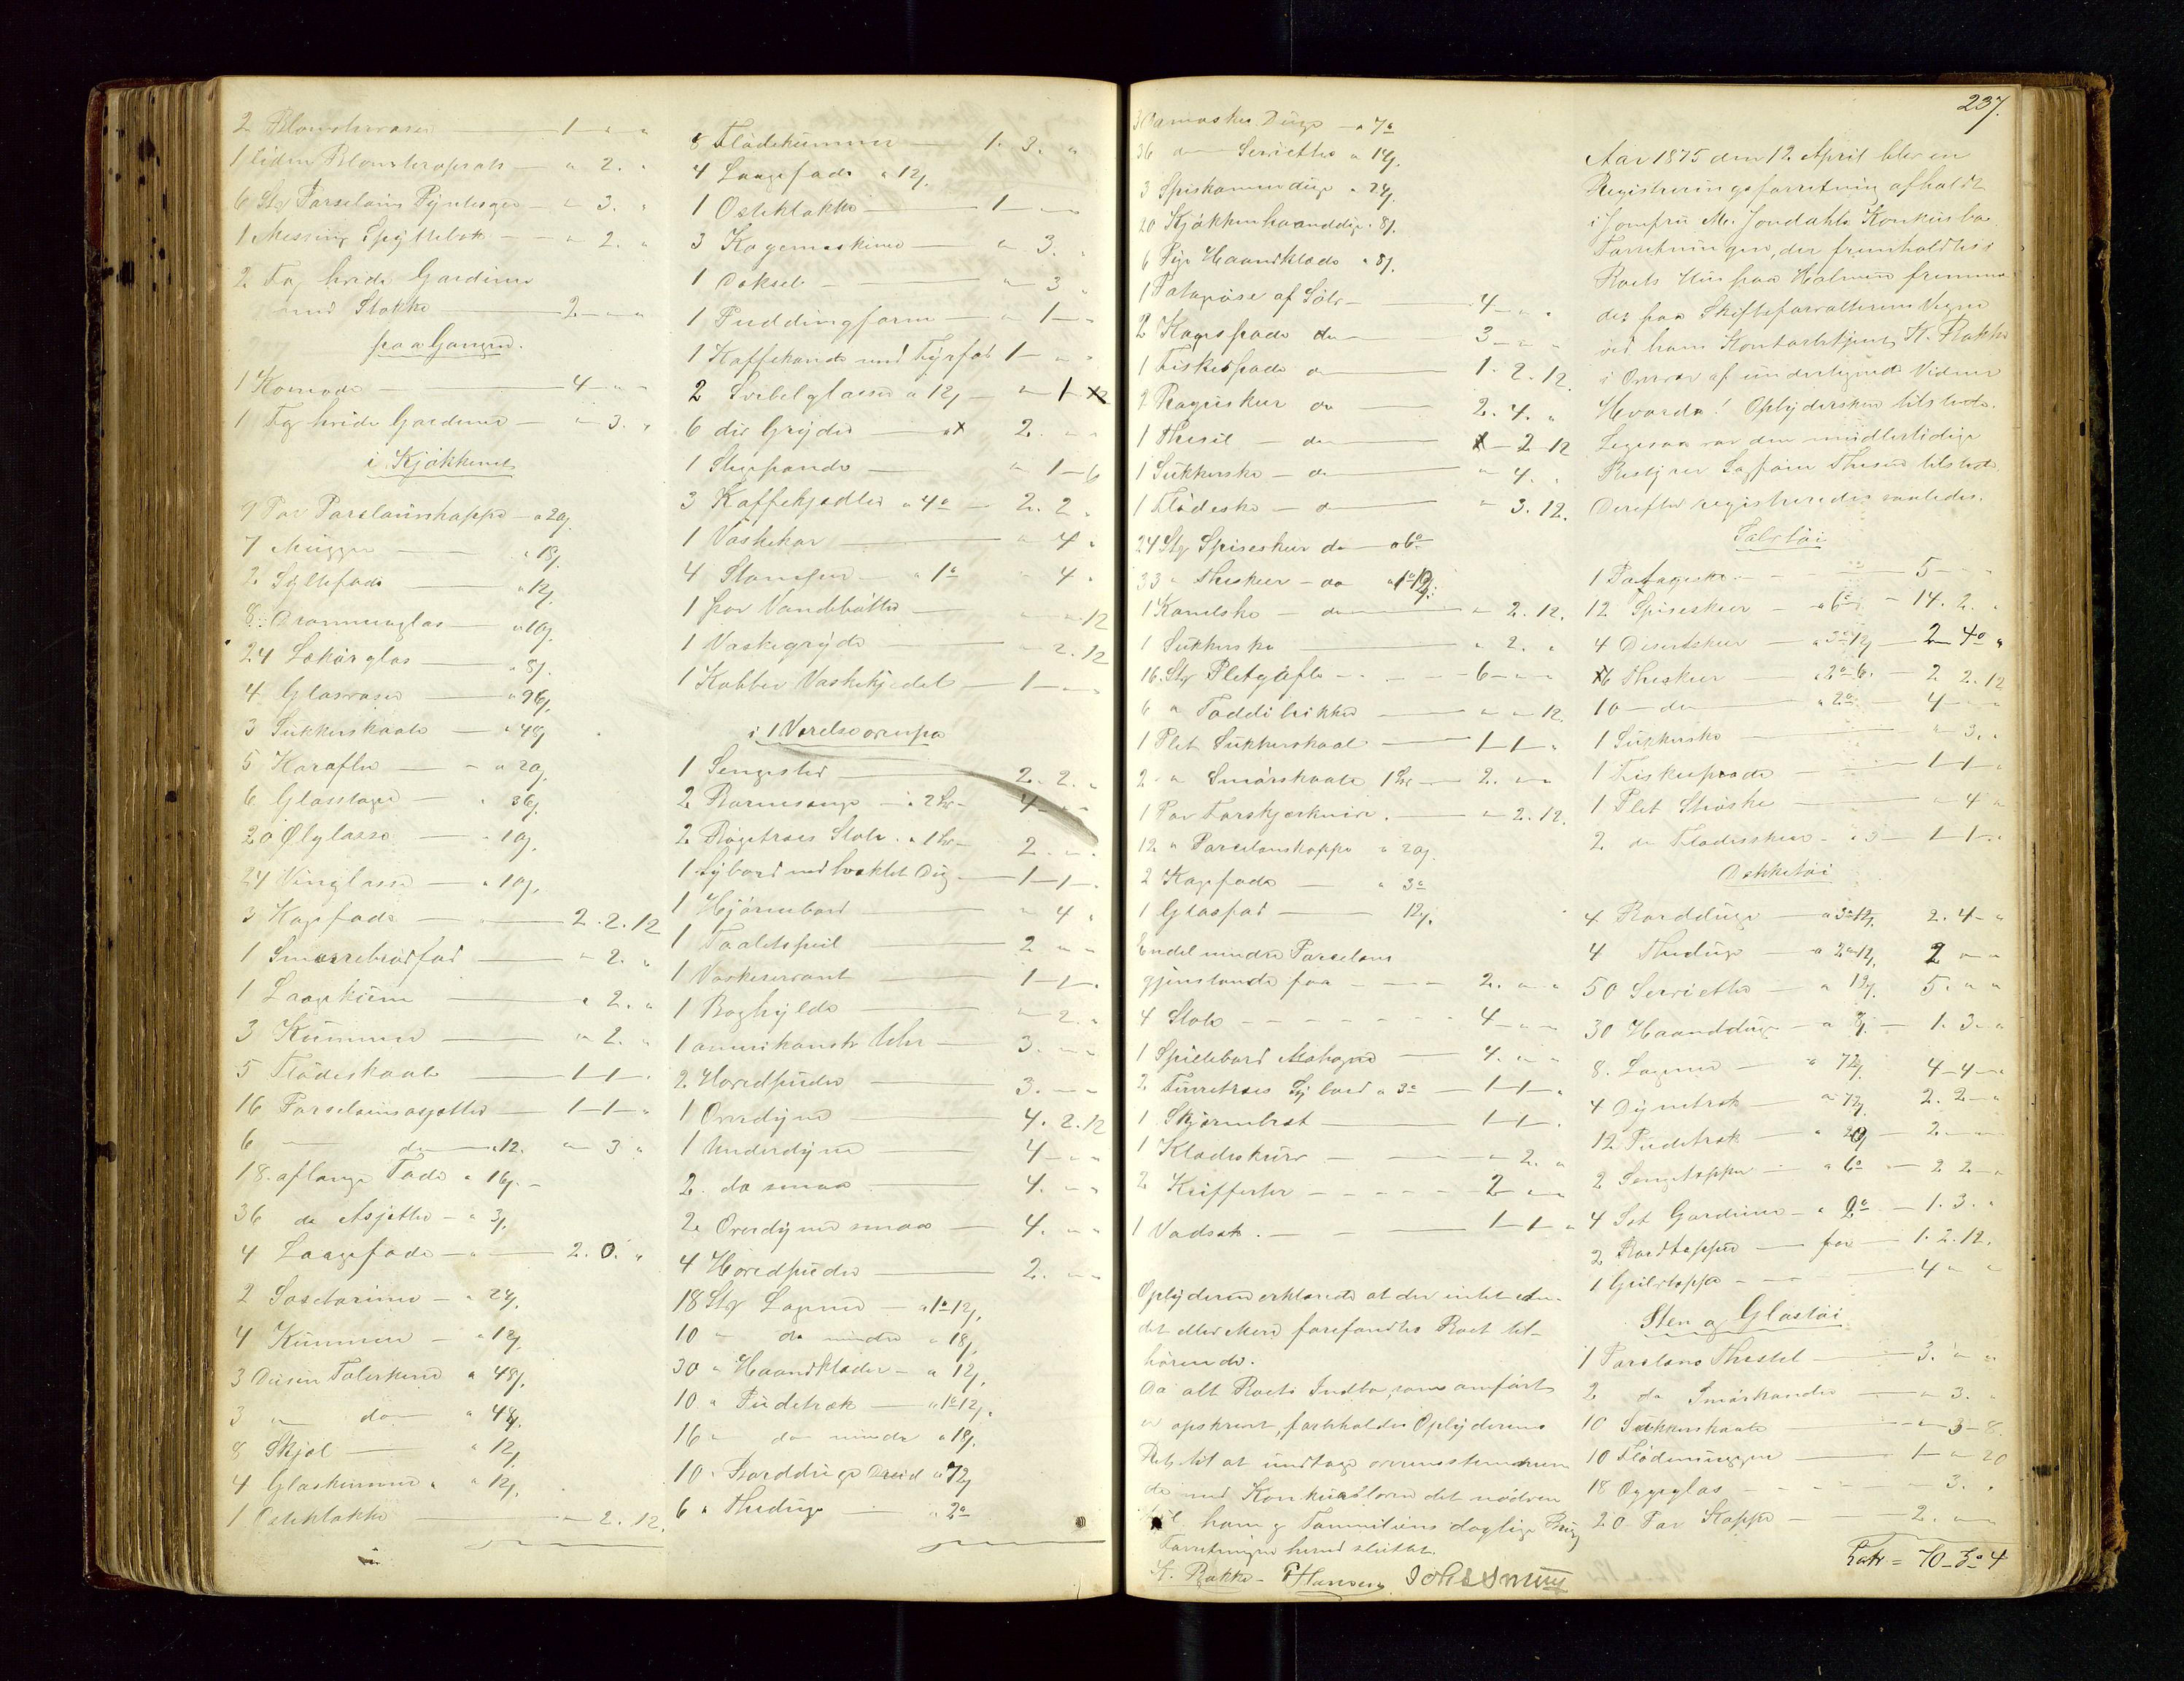 2 Blomstervaser — 1 " "
1 liden Blomsteropsats — " 2. "
6 Stk Porselains Pyntesager — " 3. "
1 Messing Spyttebak — " 2. "
2 Fag hvide Gardiner
med Stokke — 2 " "
paa Gangen.
1 Komode — 4 " "
1 Fag hvide Gardiner — " 3. "
i Kjøkkenet
9 Par Porslainskopper — a 20
7 Mugger — a 18
2 Syltefade — a 12
8 Drammenglas — a 16
24 Likørglas — a 8
4 Glasvaser — a 96
3 Sukkerskaale — a 48
5 Karafler — a 20
6 Glasslager — " 36
20 Ølglasse — " 10
24 Vinglasse — " 10
3 Kagefade — 2. 2. 12
1 Smørrebrødfad — " 2. "
1 Laagekum — " 2. "
3 Kummer — " 2. "
5 Flødeskaale — 1 – 1 – "
16 Porselainsasjetter — 1 – 1 – "
6 — do — a 12. " 3 "
18 aflange Fade a 16
36 do Asjetter — a 3
4 Laagefade — 2. 0. "
2 Sosetariner — a 24
4 Kummer — a 12
3 Dusin Talerkener a 48
3 " do — a 48
8 Skjæl — a 12
4 Glaskummer a 12
1 Osteklokke — " 2. 12.
8 Flødekummer — 1. 3. "
4 Laagefade a 12
1 Osteklokke — 1 – "
3 Kagemaskiner — " 3. "
1 Døksel — " 3 "
1 Puddingform — " 1 – "
1 Kaffekande med Fyrfad 1 – " "
2 Svibelglasse a 12 — " 1
6 dil Gryder — 2. " "
1 Stegepande — " 1 – 6
3 Kaffekjedler a 4 — 2. 2 "
1 Vaskekar — " 4 "
4 Stamper — a 1 " 4 "
1 par Vandbøtter — " " 12
1 Vaskegryde — " 2. 12
1 Kobber Vaskekjedel — 1 – "
i 1 Værelse ovenpa
1 Sengested — 2. 2. "
2 Barnesenge — a 2 — 4 – "
2 Bøgetræes Stole a 1 — 2 " "
1 Sybord med heklet Dug — 1 – 1 – "
1 Hjørnebord — " 4 "
1 Toaletspeil — 2 " "
1 Vaskeservant — 1 – 1 – "
1 Boghylde — " 2. "
1 amerikansk Uhr — 3. " "
2 Hovedpuder — 3. " "
1 Overdyne — 4. 2. 12
1 Underdyne — 4 " "
2 do smaa — 4. " "
2 Overdyner smaa — 4. " "
4 Hovedpuder — 2. " "
18 Stk Lagener — a 1 12
10 " do mindre a 18
30 " Haandklæder — a 12
10 " Pudetræk — a 1 12
16 " do mindre a 18
10 " Borddüge Dreiel a 72
6 " Theduge — a 2
237.
3 Damaskes Duge — a 7
36 do Servietter a 18
3 Spisekammerduge a 24
20 Kjøkkenhaandduge a 8
6 Pige Haandklæde a 8
1 Potageøse af Sølv — 4 – " "
2 Kagespade do — 3 – " "
1 Fiskespade do — 1. 2. 12.
7 Raguskeer do — 2. 4. "
1 Thesil — do — 2 – 12
1 Sukkerske — do — " 4. "
1 Flødeske — do — " 3. 12.
24 Stk Spiseskeer do — a 6
33 " Theskeer — do a 1 12
1 Kanelske — do — " 2. 12.
1 Sukkerske — " 2. "
16 Stk Pletgafler — 6 – " "
6 " Toddibrikker — " " 12.
1 Plet Sukkerskaal — 1 – 1 – "
2 " Smørskaale 1 — 2. " "
1 Par Forskjærkniv. — " 2. 12.
12 " Porcelanskopper a 20
2 Kagefade — a 3
1 Glasfad — 12
Endel mindre Porcelans
gjenstande for — 2. " "
4 Stole — 4 – "
1 Spillebord Mahogne — 4. " "
2 Furretræes Sybord a 3 — 1 – 1 – "
1 Skjermbræt — 1 – 1 – "
1 Klædeskurv — " 2. "
2 Kufferter — 2 – "
1 Vadsæk. — 1 – 1 – "
Oplyderen erklærede at der intet an-
det eller Mere forefandtes Boet til-
hørende.
Da alt Boets Indbo, som anført
er opskrevet, forbeholdte Oplyderens
Ret til at undtage overensstemmen
de med Konkursloven det nødven
ham og Familiens daglige Brug
Forretningen hermed sluttet.
K. Bakke P Hansen
Aar 1875 den 12 April blev en
Registreringsforretning afholdt
i Jomfru M. Jondahls Konkursbo
Forretningen, der fremholdtes i
Boets Hus paa Holmen fremmø
des paa Skifteforvalterens Vegne
ved hans Kontorbetjent K. Bakke
i Overvær af undertegnede Vidner
Hvorda! Oplyderskken tilstede.
Ligesaa var den midlertidige
Bestyrer Sagfører Thesen tilstede.
Derefter registreredes saaledes.
Sølvtøi
1 Potageske — 5 – "
12 Spiseskeer — a 6 — 14. 2. "
4 Desertskeer — a 3 12 — 2 – 4 "
6 Theskeer — a 2 6 — 2 2. 12
10 — do — a 2 — 4 – "
1 Sukkerske — " 3. "
1 Fiskespade — 1 – 1 – "
1 Plet Strøske — " 4 "
2 do Flødeskeer — a 3 — 1 – 1 – "
Dækketøi
4 Borddüge — a 3 12 2. 4 – "
4 Theduge — a 2 12 2 " "
50 Servietter — a 12 5. " "
30 Haandduge — a 8 — 1. 3. "
8 Lagener — a 72 4 – 4 – "
4 Dynetræk — a 72 2. 2 – "
12 Pudetræk — a 20 — 2 – "
2 Sengtepper — a 6 — 2 2 – "
4 Set Gardiner — a 2 — 1. 3. "
2 Bordtepper — for — 1. 2. 12.
1 Gulvteppe — 4 " "
Sten og Glastøi
1 Porclans Thestel — 3. " "
2 do Smørkander — " 3. "
10 Sukkerskaale — " 3 – 8.
10 Flødemugger — 1 – " 20
18 Øggeglas — 3. "
20 Par Kopper — 2. " "
Latr = 70 – 3 – 4